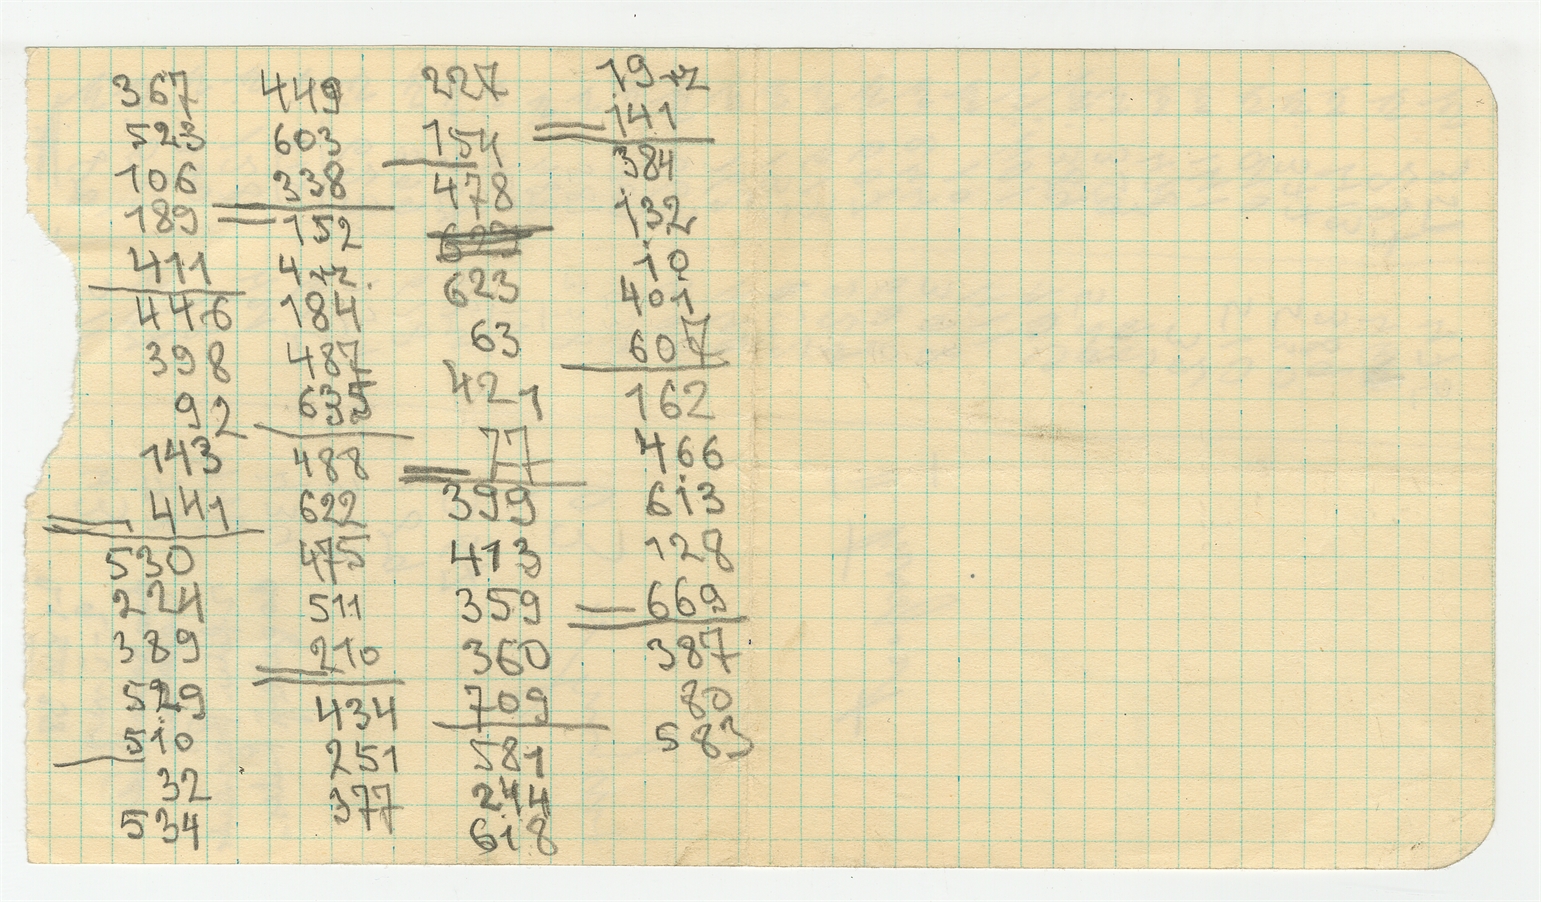 367
523
106
189
411
446
398
92
143
441
530
224
389
529
510
32
534
449
603
338
152
184
487
488
622
475
511
210
434
251
377
227
154
478
623
63
421
77
399
413
359
360
709
581
244
618
141
384
132
10
401
607
162
466
613
128
669
387
80
583